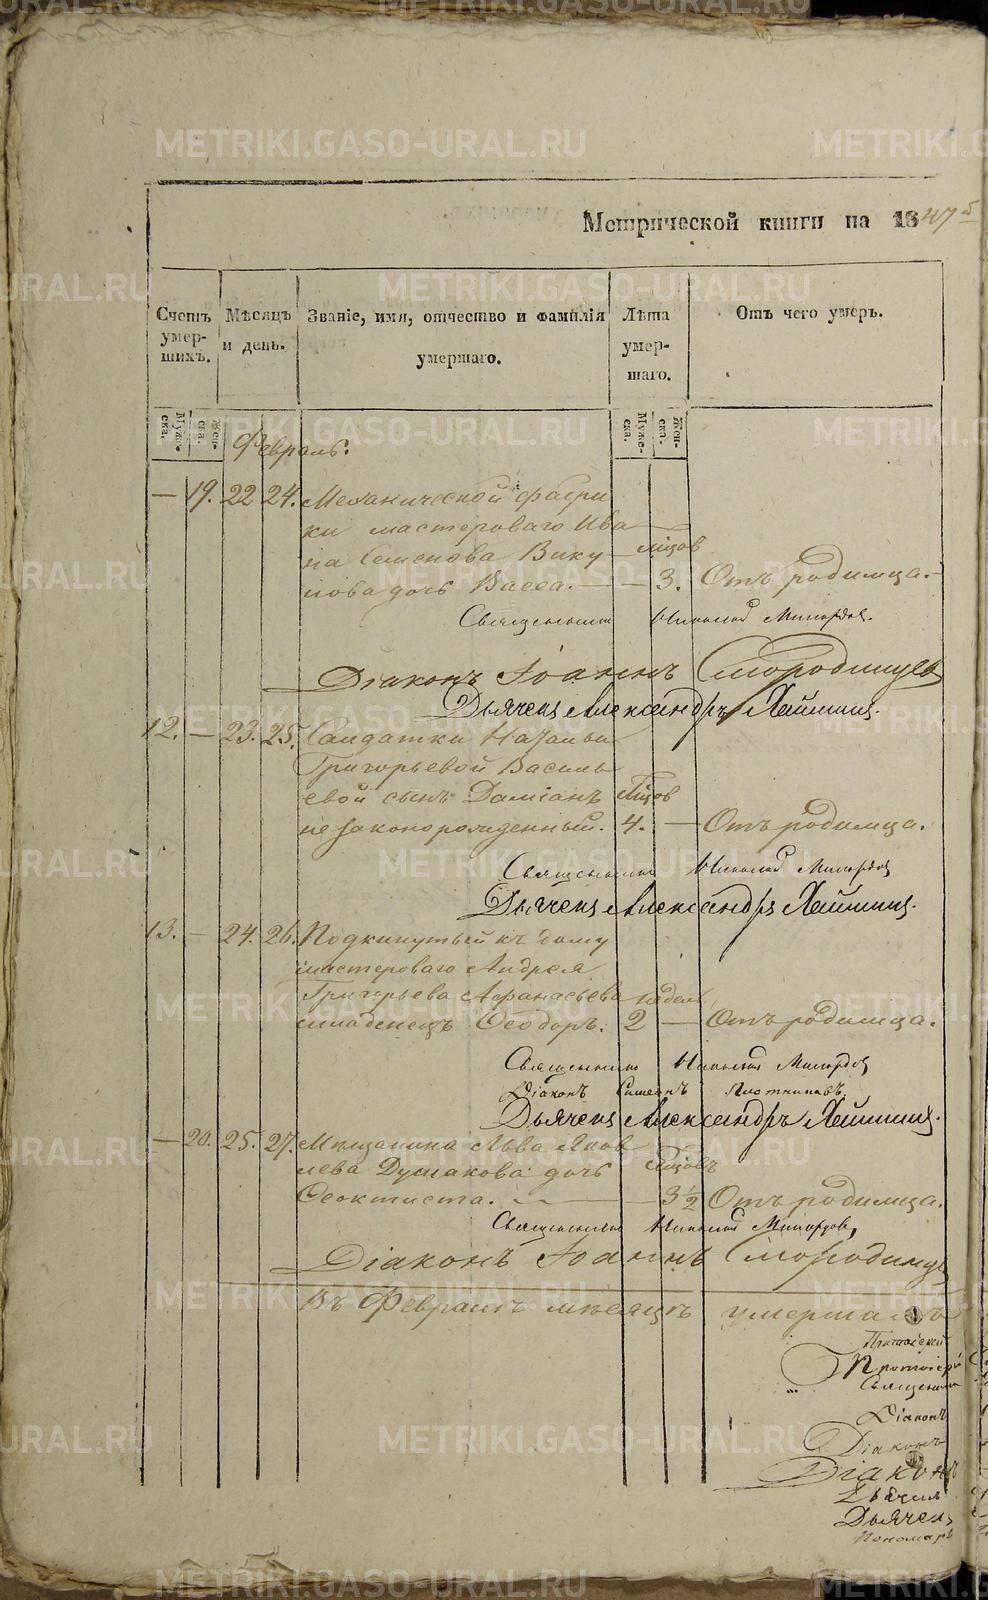 Метрической книги на 1847ᵍ
Счетъ умер-шихъ.
Мѣсяцъ и день.
Званіе, имя, отчество и фамилія умершаго.
Лѣта умер-шаго.
Отъ чего умеръ.
Муже-ска.
Жен-ска.
Муже-ска.
Жен-ска.
Февраль.
— 19. 22 24. Механической фабри
ки мастероваго Ива
на Семенова Вику — мѣцов
лова дочь Васса. — — 3. Отъ родимца. —
Священникъ Николай
Діаконъ Іоаннъ Смородинцев
Дьячекъ Александръ
12. — 23. 25. Салдатки Натальи
Григорьевой Василь
евой сынъ Даміанъ мѣцов
незаконорожденный. 4. — Отъ родимца.
Священникъ Николай
Дьячекъ Александръ
13. — 24. 26. Подкинутый къ дому
мастероваго Андрея
Григорьева Афанасьева недѣль
младенецъ Ѳеодоръ. 2 — Отъ родимца.
Священникъ Николай
Діаконъ Симеонъ Плотниковъ.
Дьячекъ Александръ
— 20. 25. 27. Мѣщанина Льва Яков
лева Дулакова дочь мѣцовъ
Феоктиста. — 3½ Отъ родимца.
Священникъ Николай
Діаконъ Іоаннъ Смородинцев
Въ Февралѣ мѣсяцѣ умершихъ
Протоіерей
Священник
Діаконъ
Діаконъ
Діаконъ
Дьячекъ
Дьячекъ
Пономарь
METRIKI.GASO-URAL.RU